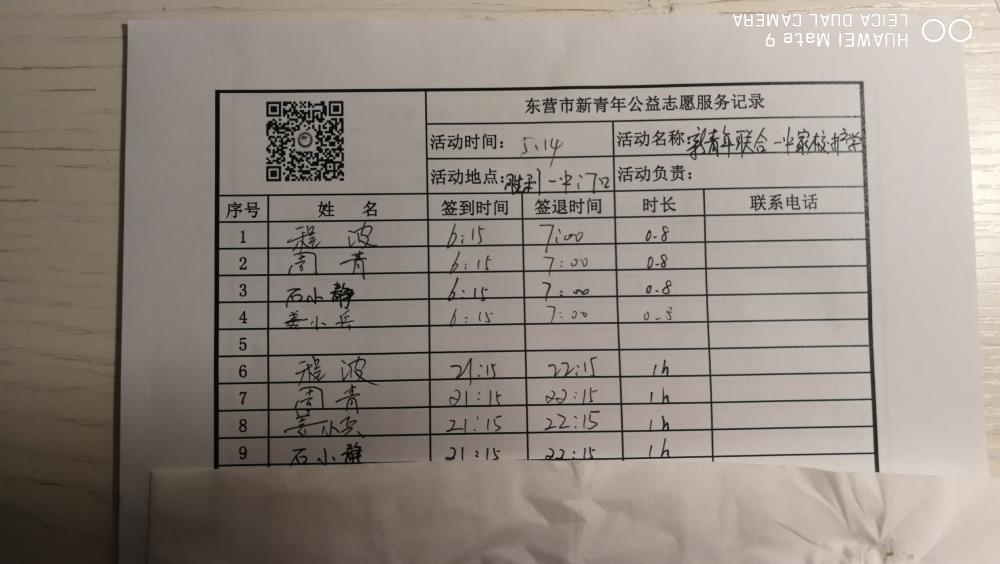 HUAWEI Mate 9
LEICA DUAL CAMERA
东营市新青年公益志愿服务记录
活动时间: 5.14 活动名称: 新青年联合一中家校护学
活动地点: 胜利一中门口 活动负责:
序号 姓 名 签到时间 签退时间 时长 联系电话
1 程 波 6:15 7:00 0.8
2 周 青 6:15 7:00 0.8
3 石小静 6:15 7:00 0.8
4 姜小兵 6:15 7:00 0.8
5
6 程 波 21:15 22:15 1h
7 周 青 21:15 22:15 1h
8 姜小兵 21:15 22:15 1h
9 石小静 21:15 22:15 1h